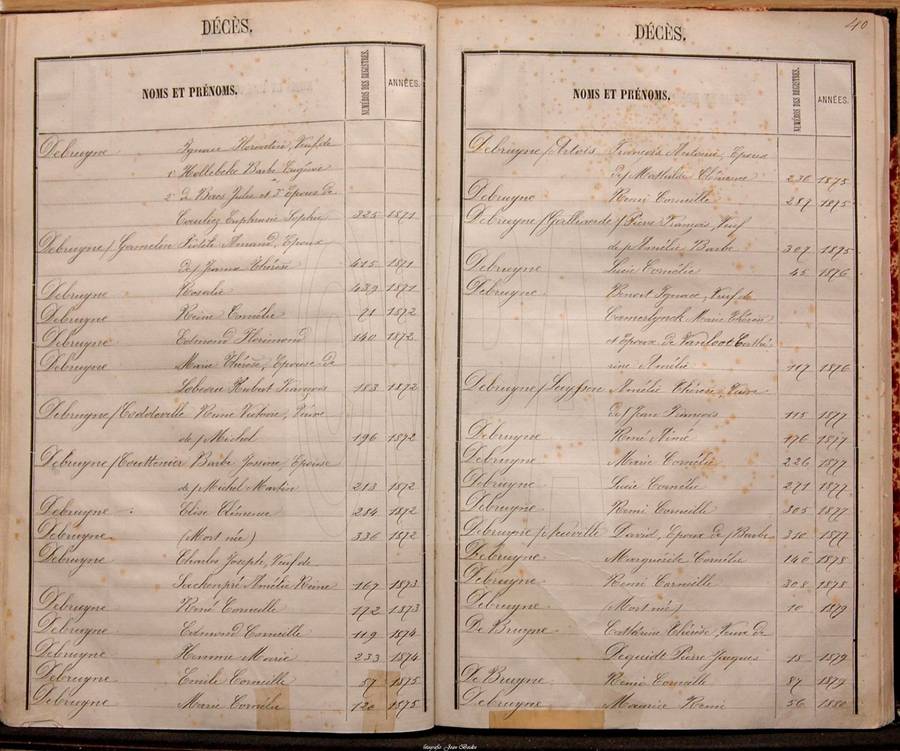 DÉCÈS.
NOMS ET PRÉNOMS. NUMÉROS DES REGISTRES ANNÉES.
Debruyne Ignace Florentin, Veuf de
1° Hollebeke Barbe Eugénie
2° de Baes Julie et 3° Epoux de
Euphrasie Sophie 325 1871
Debruyne / Gamelin Amand, Epoux
de / Jeanne Thérèse 415 1871
Debruyne Rosalie 439 1871
Debruyne Reine Cornélie 71 1872
Debruyne Edmond Florimond 140 1872
Debruyne Marie Thérèse, Epouse de
Hubert François 183 1872
Debruyne / Reine Victoire, Veuve
de / Michel 196 1872
Debruyne / Couttenier Barbe Josine, Epouse
de / Michel Martin 213 1872
Debruyne Elise Clémence 284 1872
Debruyne (Mort né) 336 1872
Debruyne Charles Joseph, Veuf de
Amélie Reine 167 1873
Debruyne René Corneille 172 1873
Debruyne Edmond Corneille 119 1874
Debruyne Marie 233 1874
Debruyne Emile Corneille 57 1875
Debruyne Marie Cornélie 120 1875
40
DÉCÈS.
NOMS ET PRÉNOMS. NUMÉROS DES REGISTRES ANNÉES.
Debruyne / Artois François Antoine, Epoux
de / Mathilde Clémence 230 1875
Debruyne Remi Corneille 289 1875
Debruyne / Pierre François, Veuf
de / Amélie Barbe 307 1875
Debruyne Lucie Cornélie 45 1876
Debruyne Benoit Ignace, Veuf de
Camerlynck Marie Thérèse
et Epoux de Vanloot Cathé-
rine Amélie 117 1876
Debruyne / Luyssen Amélie Thérèse, Veuve
de / Jean François 115 1877
Debruyne René Aimé 176 1877
Debruyne Marie Cornélie 226 1877
Debruyne Lucie Cornélie 271 1877
Debruyne Remi Corneille 305 1877
Debruyne / David, Epoux de / Barbe 310 1877
Debruyne Marguérite Cornélie 140 1878
Debruyne Remi Corneille 308 1878
Debruyne (Mort né) 10 1879
De Bruyne Cathérine Thérèse, Veuve de
Dequidt Pierre Jacques 18 1879
De Bruyne Remi Corneille 87 1879
Debruyne Maurice Remi 56 1880
fotografie Jean Beckx